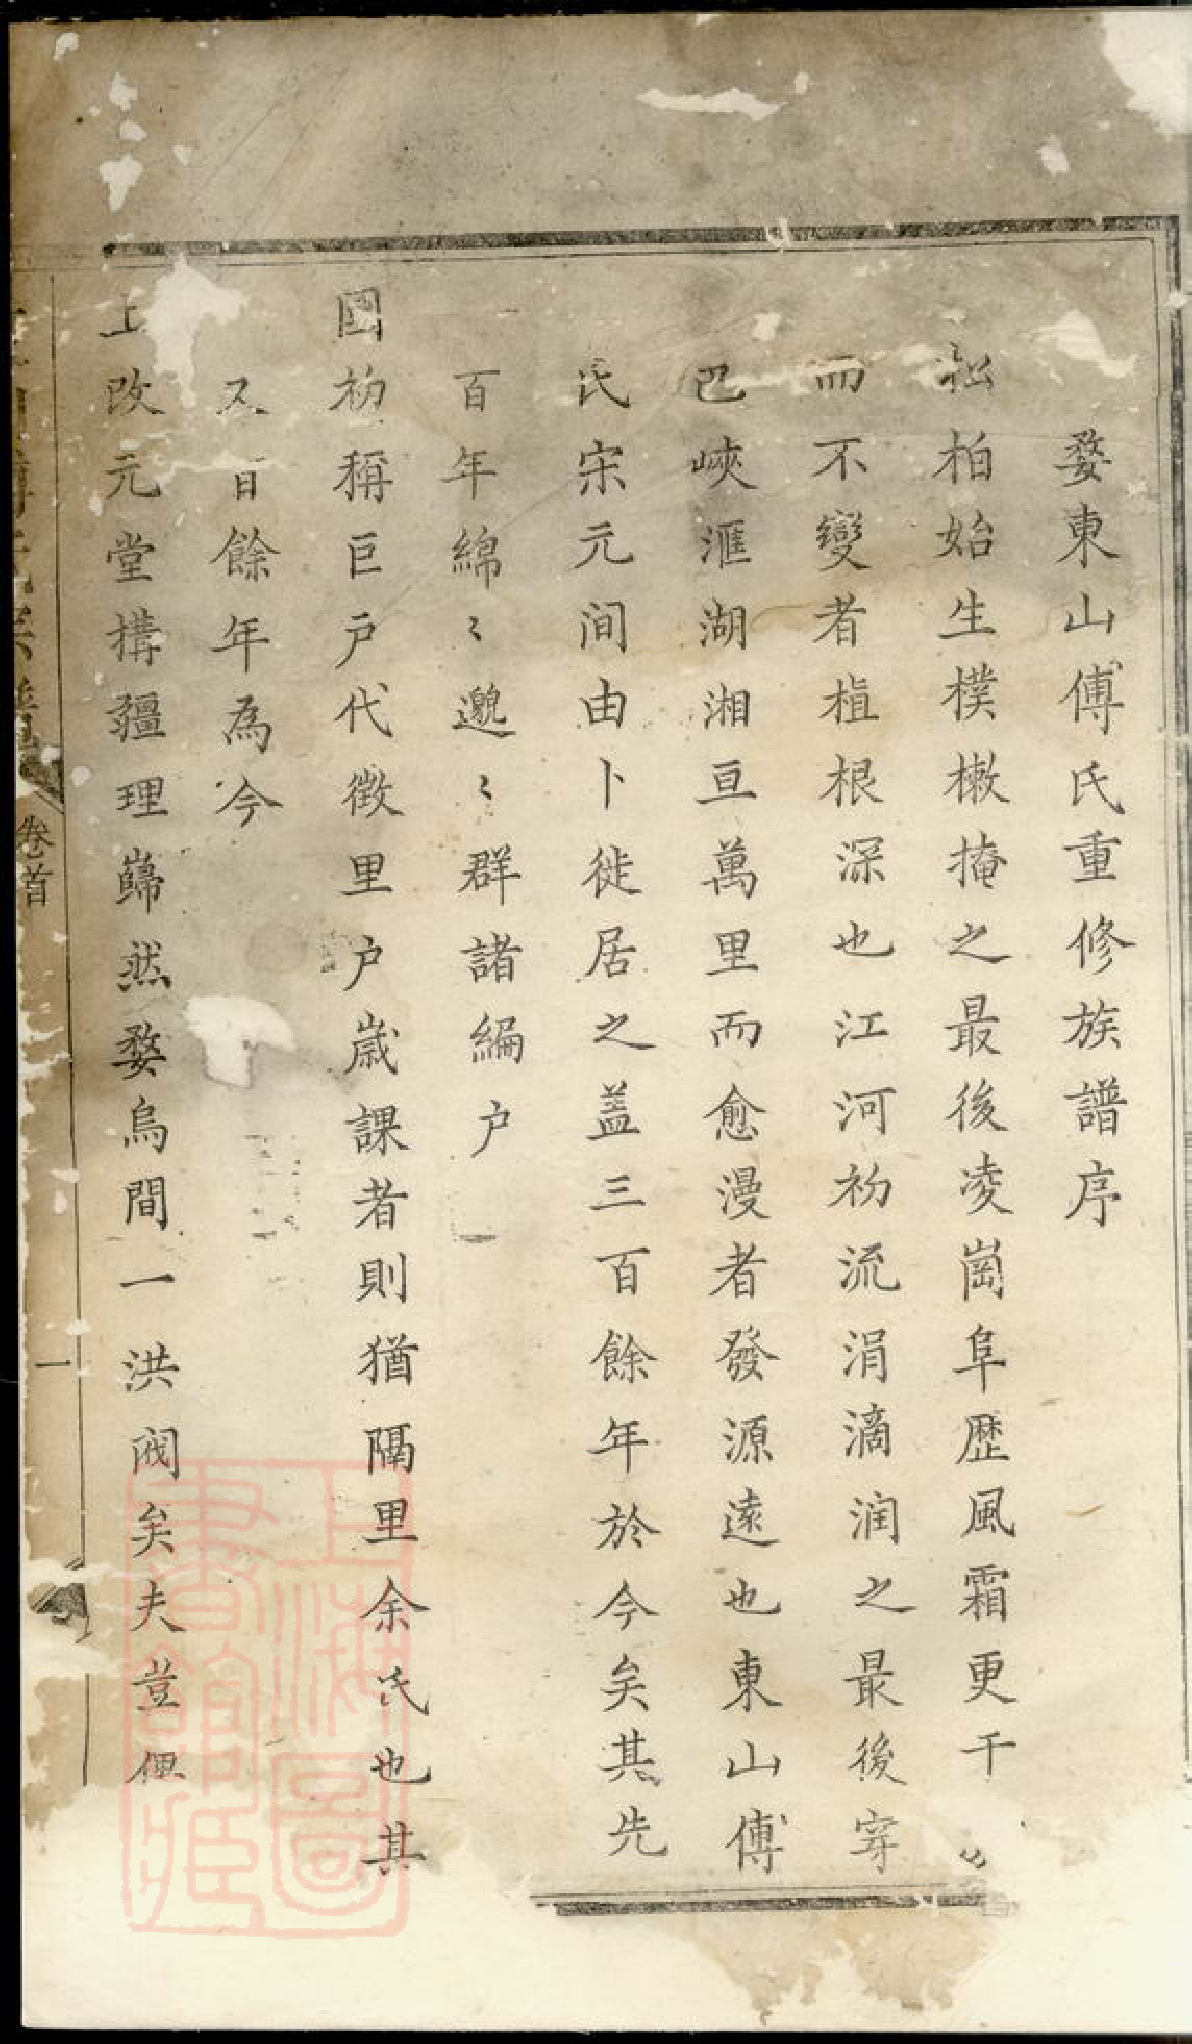 婺東山傅氏重修族譜序
松柏始生樸樕掩之最後凌崗阜歷風霜更千
而不變者植根深也江河初流涓滴润之最後穿
巴峽滙湖湘亘萬里而愈漫者發源遠也東山傅
氏宋元间由卜徙居之盖三百餘年於今矣其先
百年綿〻邈〻群諸編户
國初稱巨戸代徵里户歲課者則猶隔里余氏也其
又百餘年為今
上改元堂構疆理巋然婺烏間一洪阀矣夫荳
卷首
一
上海圖書館藏